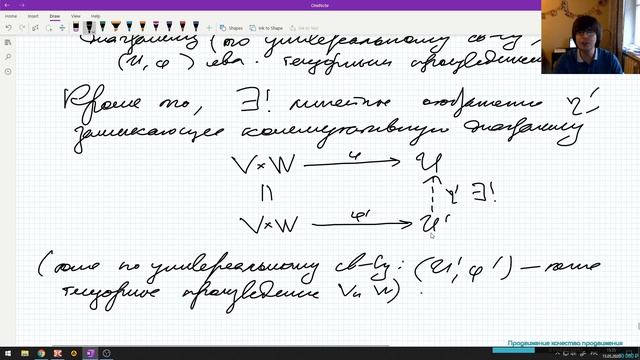 OneNote
File Home Insert Draw View Help
Shapes Ink to Shape
диаграмму (по универсальному св-ву,
(U, φ) явл. тензорным произведением
Кроме того, ∃! линейное отображение η',
замыкающее коммутативную диаграмму
V×W φ U
|| η' ∃!
V×W φ' U'
(тоже по универсальному св-ву: (U', φ') — тоже
тензорное произведение V и W).
Продвижение качества продвижения
13.05.2020